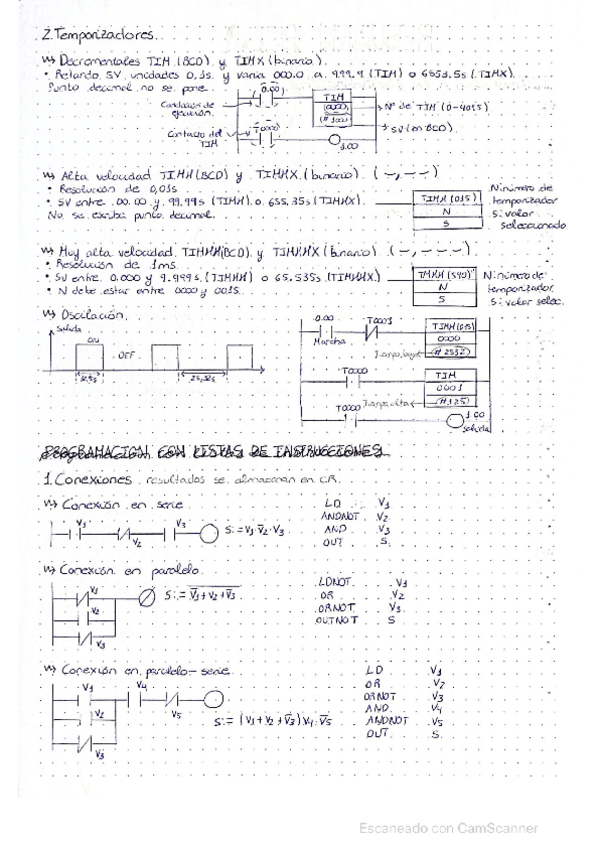 2. Temporizadores.
↝ Decrementales TIM (BCD) y TIMX (binario).
• Retardo SV, unidades 0,1s. y varia 000.0 a 999.9 (TIM) o 6553.5s (TIMX).
Punto decimal no se pone.
Condición de ejecución.
0.00
TIM
0000
#100
Nº de TIM (0-4095)
SV (en BCD)
Contacto del TIM
T0000
1.00
↝ Alta velocidad TIMH (BCD) y TIMHX (binario). (-,--)
• Resolución de 0,01s
• SV entre 00.00 y 99.99s (TIMH) o 655,35s (TIMHX).
No se escribe punto decimal.
TIMH (015)
N
S
N: número de temporizador
S: valor seleccionado
↝ Muy alta velocidad TIMHH (BCD) y TIMHHX (binario) (-,---)
• Resolución de 1ms.
• SV entre 0.000 y 9.999s. (TIMHH) o 65.535s (TIMHHX.)
• N debe estar entre 0000 y 0015.
TMHH (540)
N
S
N: número de temporizador
S: valor selec.
↝ Oscilación.
Salida
ON
OFF
12,5s
25,32s
0.00
T0001
TIMH(015)
0000
#2532
Marcha
T.campo bajo
T0000
TIM
0001
#125
T.campo alta
T0000
1.00
Salida
PROGRAMACION CON LISTAS DE INSTRUCCIONES
1. Conexiones, resultados se almacenan en CR.
↝ Conexión en serie
V1
V2
V3
S:=V1·V̅2·V3
LD V1
ANDNOT V2
AND V3
OUT S
↝ Conexión en paralelo
V1
V2
V3
S:= V̅1+V2+V̅3
LDNOT V1
OR V2
ORNOT V3
OUTNOT S
↝ Conexión en paralelo-serie
V1
V4
V2
V5
V3
S:= (V1+V2+V̅3)V4·V̅5
LD V1
OR V2
ORNOT V3
AND V4
ANDNOT V5
OUT S
Escaneado con CamScanner